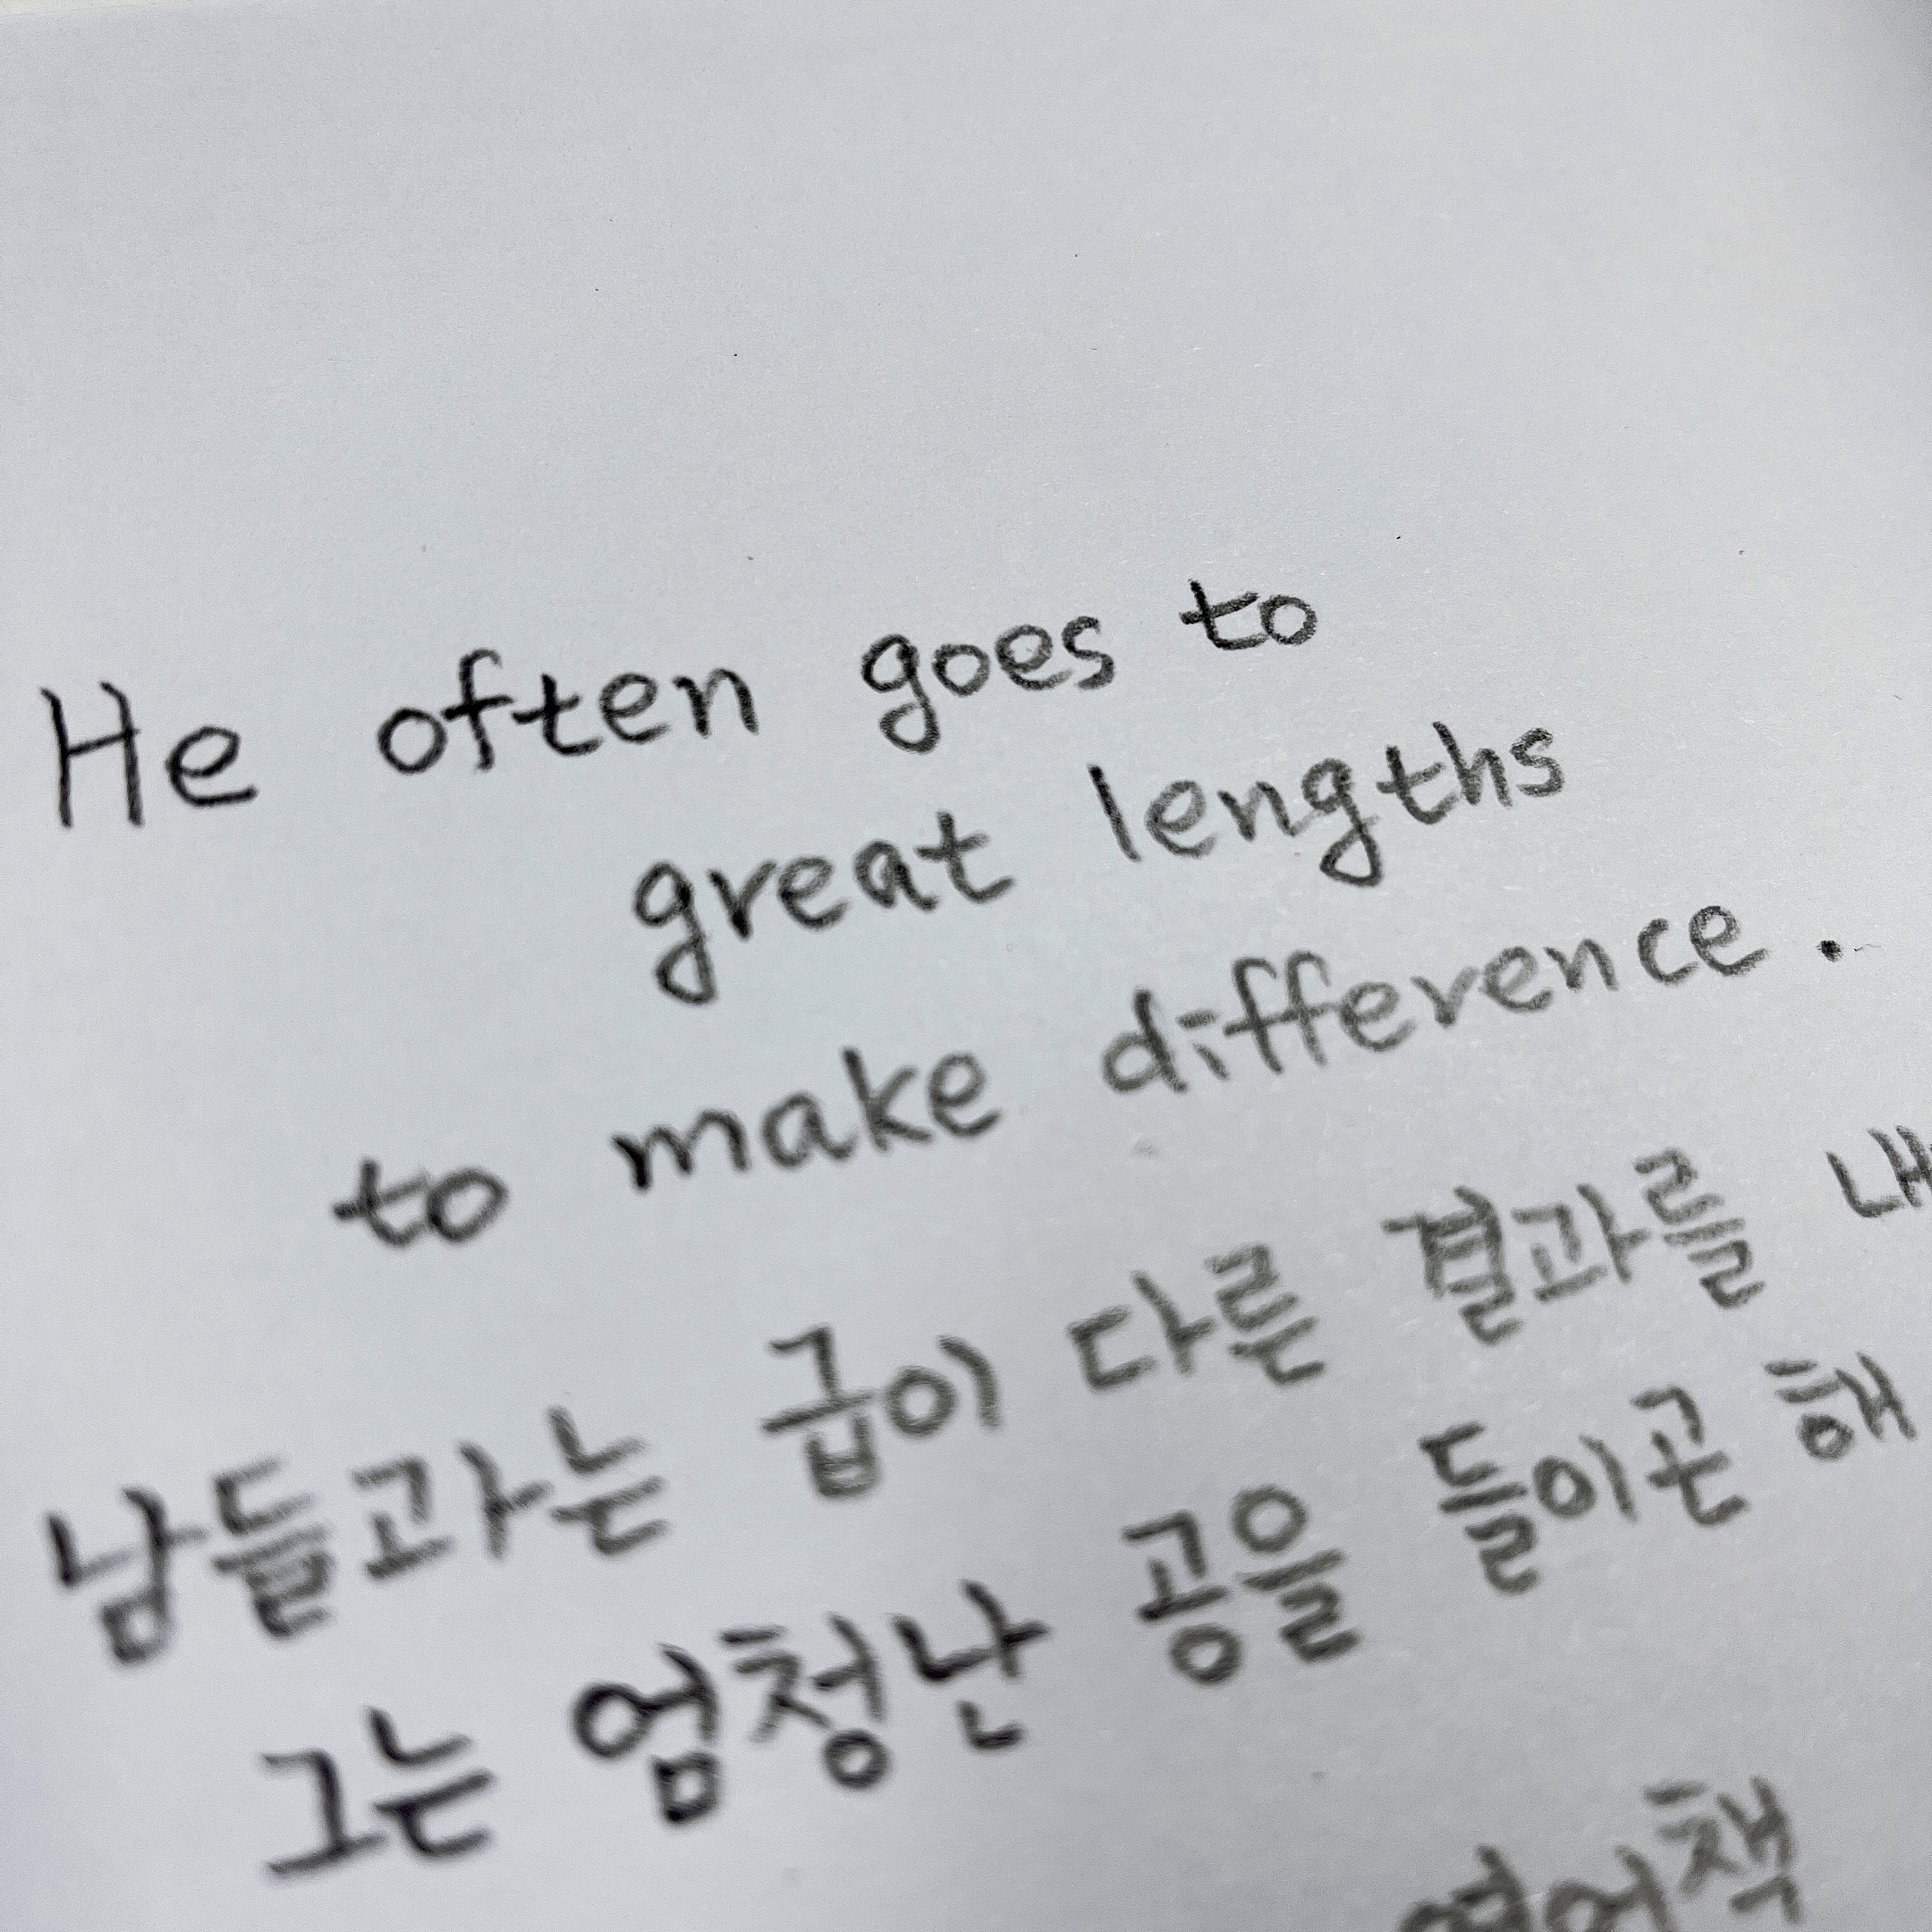 He often goes to
great lengths
to make difference.
남들과는 급이 다른 결과를 내
그는 엄청난 공을 들이곤 해
영어책